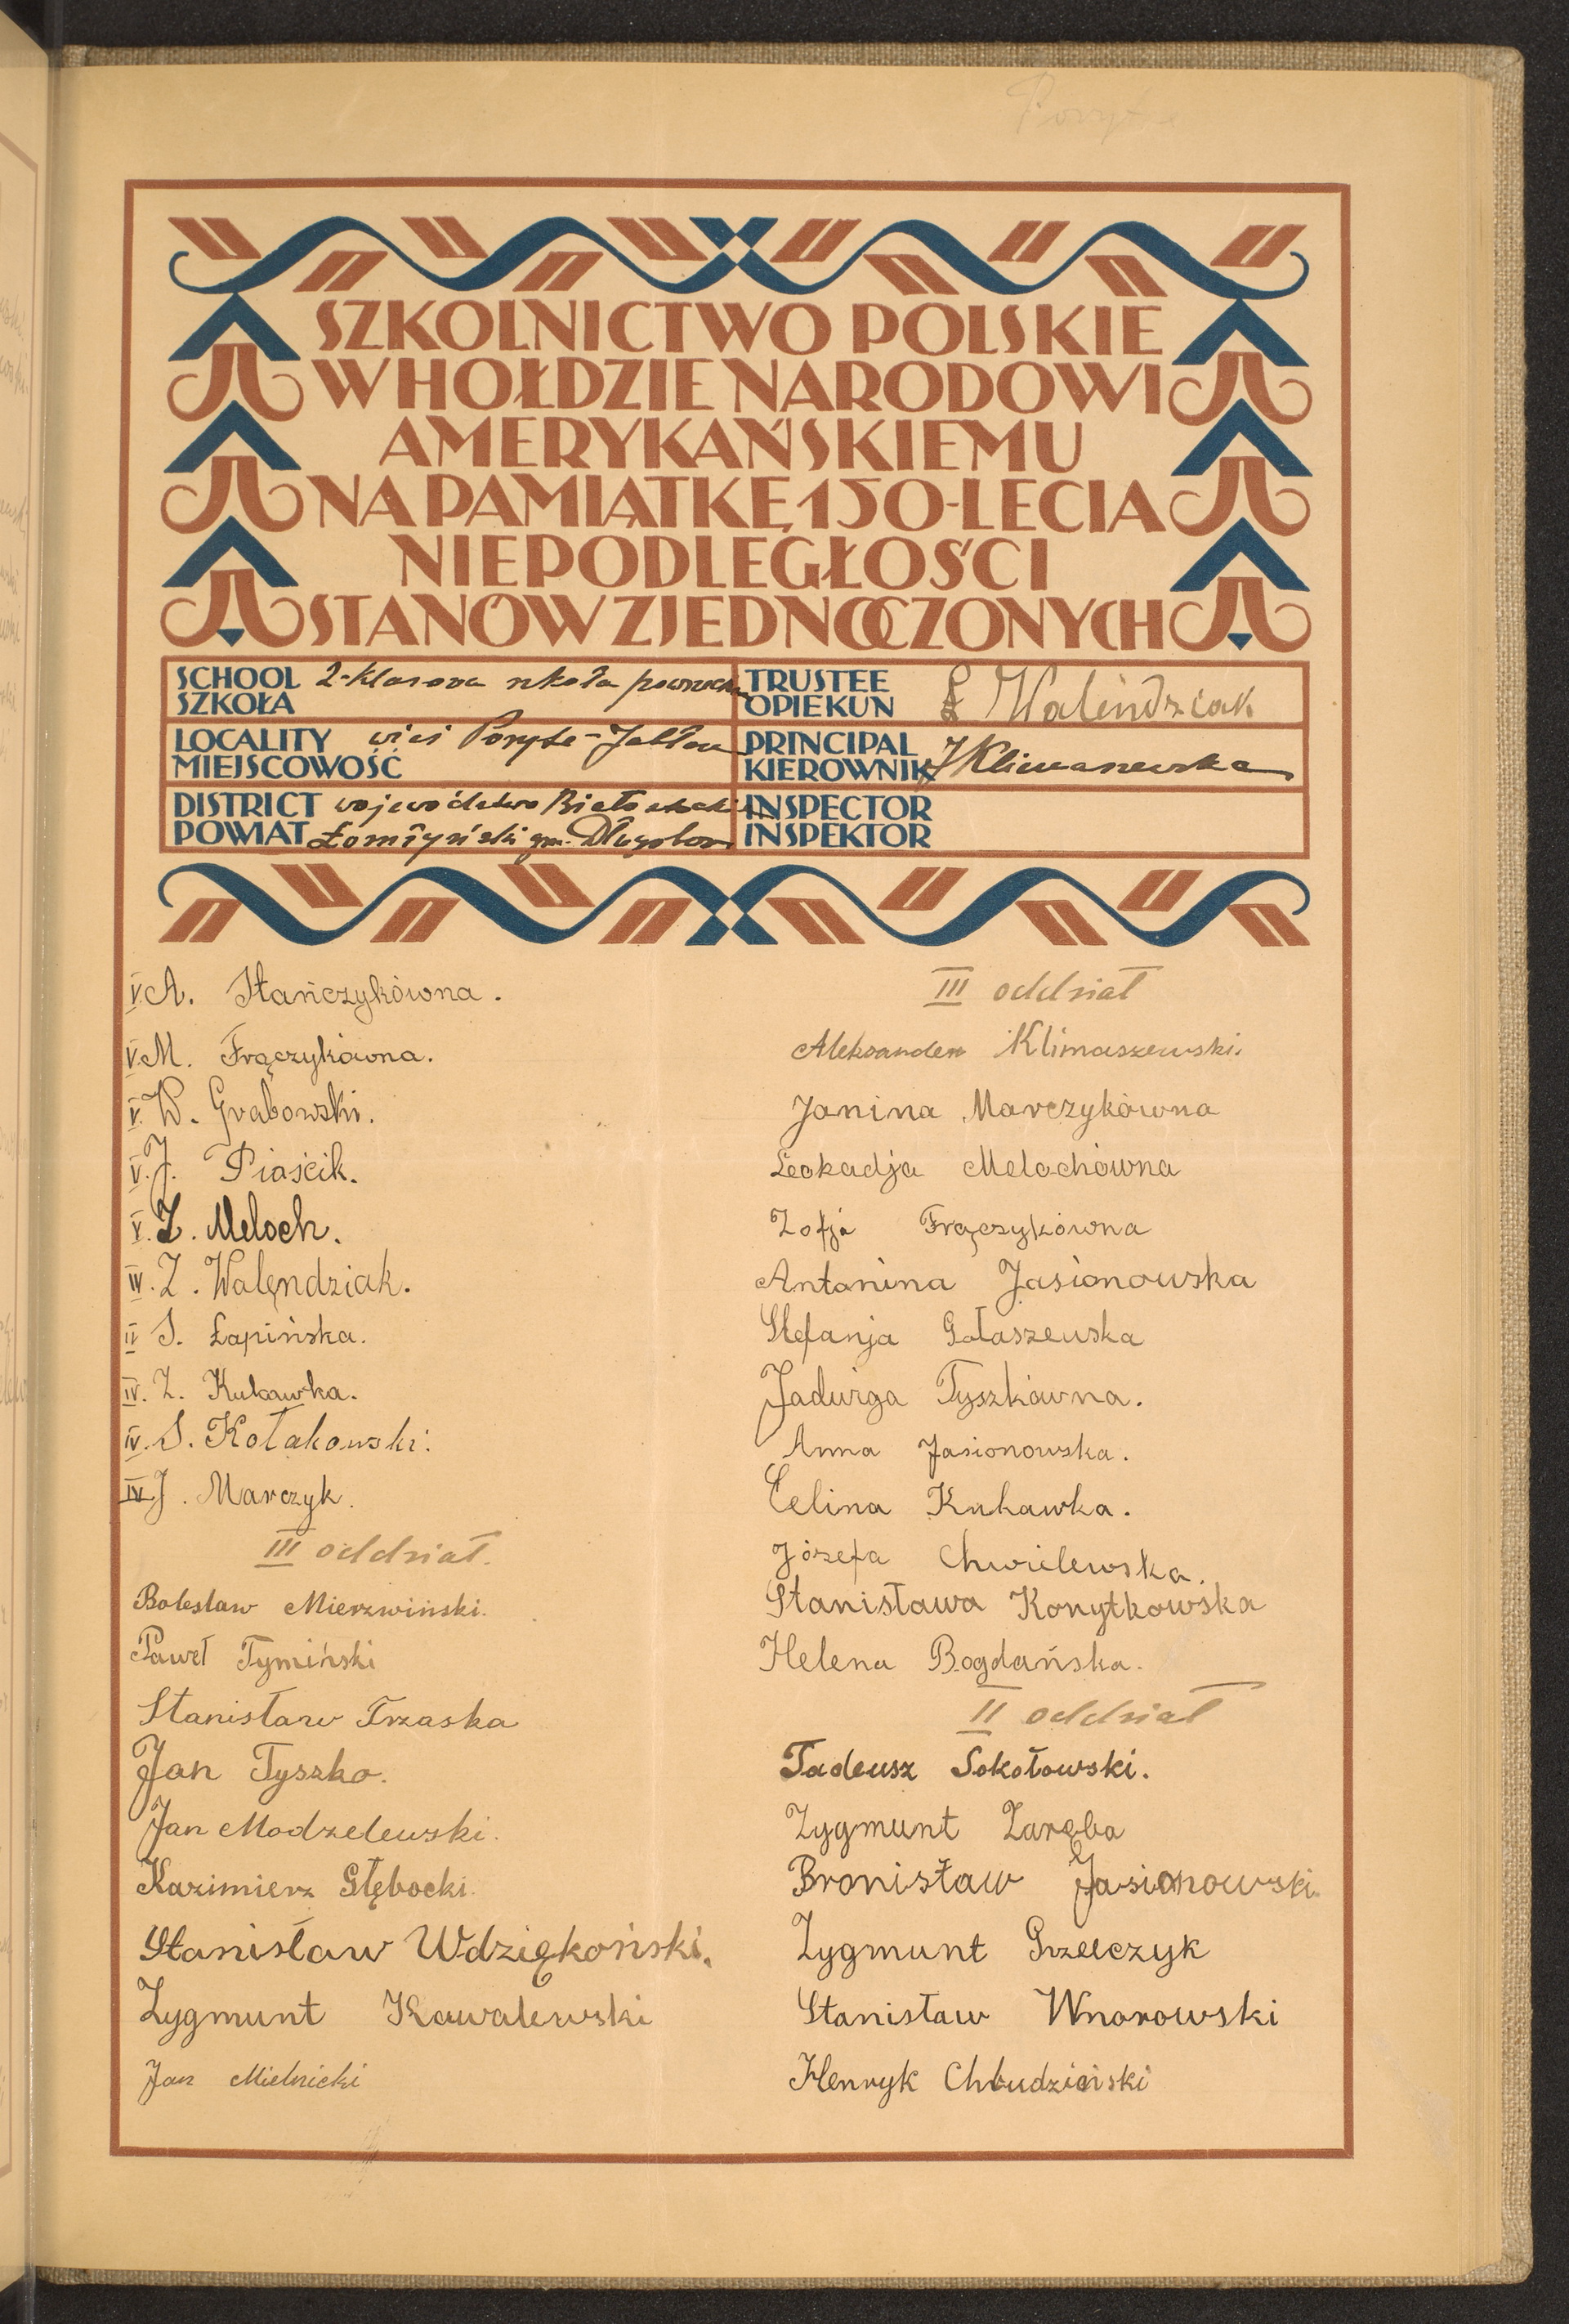 Poryte
SZKOLNICTWO POLSKIE
W HOŁDZIE NARODOWI
AMERYKAŃSKIEMU
NA PAMIĄTKĘ 150-LECIA
NIEPODLEGŁOŚCI
STANÓW ZJEDNOCZONYCH
SCHOOL
SZKOŁA
2-klasowa szkoła powszechna
TRUSTEE
OPIEKUN
Walendziak
LOCALITY
MIEJSCOWOŚĆ
wieś Poryte-Jabłoń
PRINCIPAL
KIEROWNIK
J Klimaszewska
DISTRICT
POWIAT
województwo Białostockie
Łomżyński gm.
INSPECTOR
INSPEKTOR
V A. Stańczykówna.
V M. Frączykówna.
V. W. Grabowski.
V. J. Piaścik.
V. Z. Meloch.
IV. Z. Walęndziak.
IV S. Łapińska.
IV. Z. Kukawka.
IV. S. Kołakowski.
IV J. Marczyk.
III oddział.
Bolesław Mierzwiński.
Paweł Tymiński
Stanisław Trzaska
Jan Tyszko.
Jan Modzelewski.
Kazimierz Głębocki.
Stanisław Wdziękoński.
Zygmunt Kawalewski
Jan Mielnicki
III oddział
Aleksander Klimaszewski.
Janina Marczykówna
Leokadja Melochówna
Zofja Frączykówna
Antonina Jasionowska
Stefanja Gołaszewska
Jadwiga Tyszkówna.
Anna Jasionowska.
Celina Kukawka.
Józefa Chwilewska.
Stanisława Konytkowska
Helena Bogdańska.
II oddział
Tadeusz Sokołowski.
Zygmunt Zaręba
Bronisław Jasionowski
Zygmunt Grzelczyk
Stanisław Wnorowski
Henryk Chłudziński